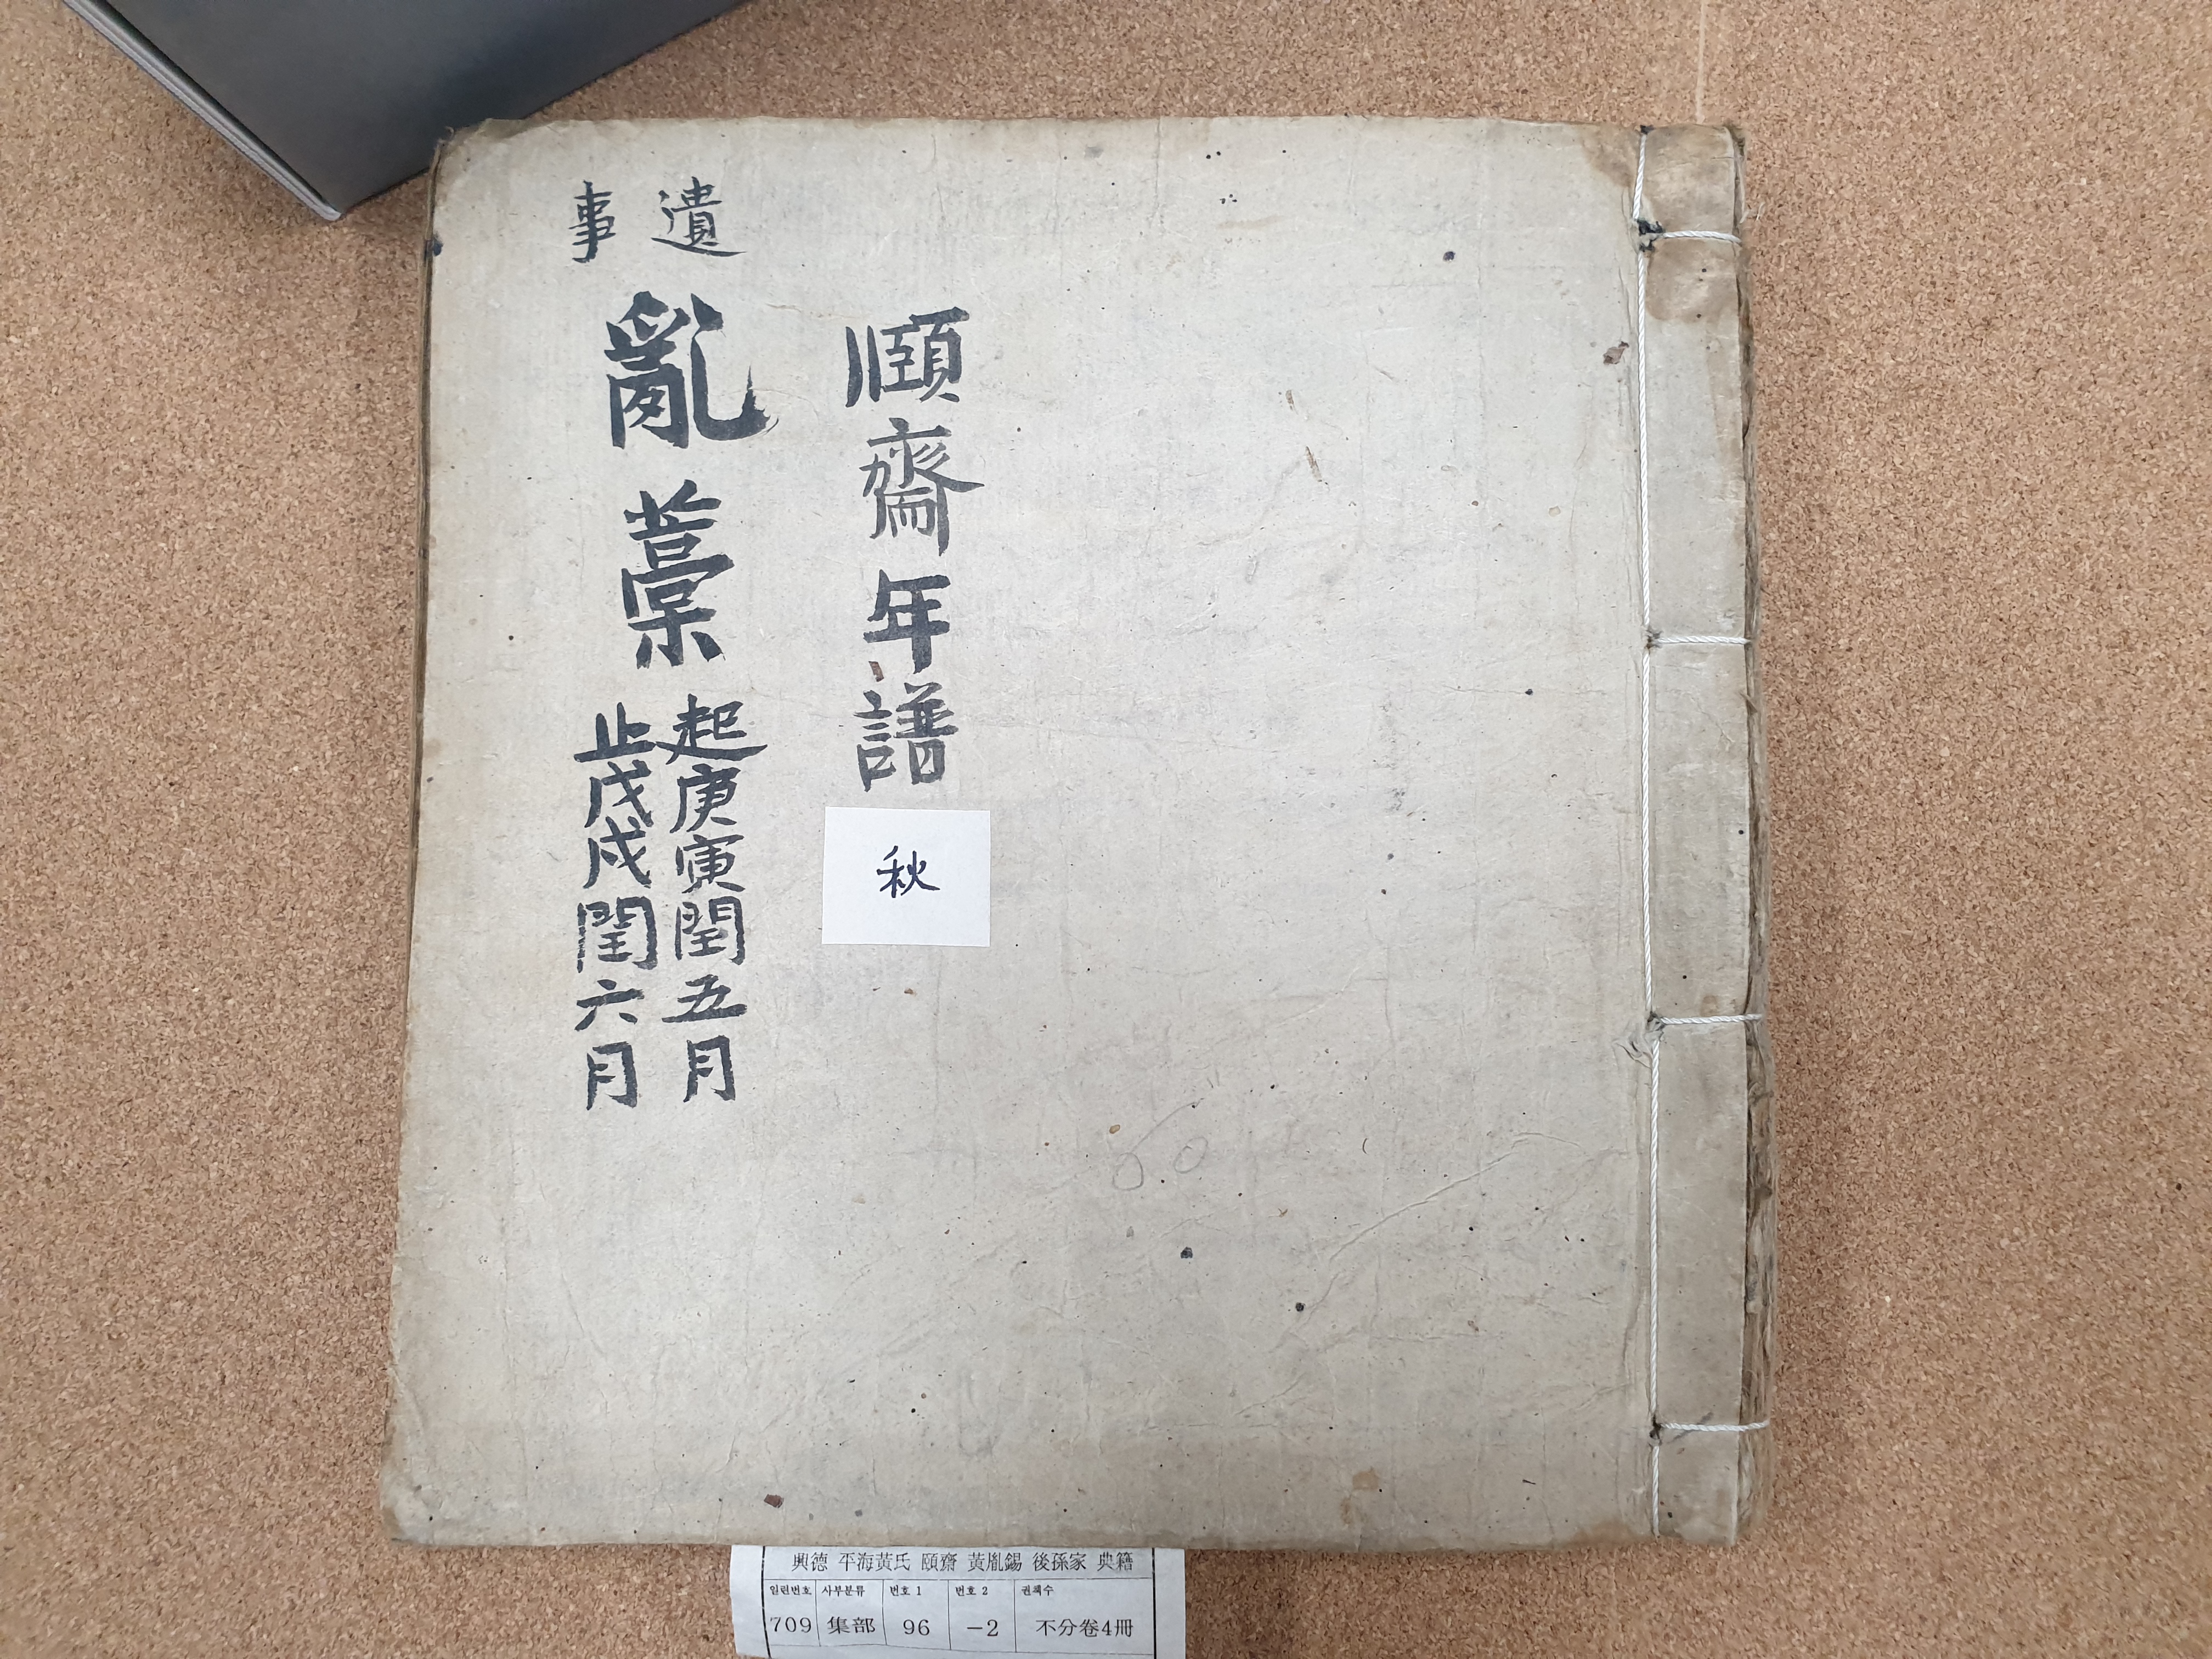 頤齋年譜
秋
遺事
亂藁
起庚寅閏五月
止戊戌閏六月
60
興德 平海黃氏 頤齋 黃胤錫 後孫家 典籍
일련번호 사부분류 번호 1 번호 2 권책수
709 集部 96 -2 不分卷4冊